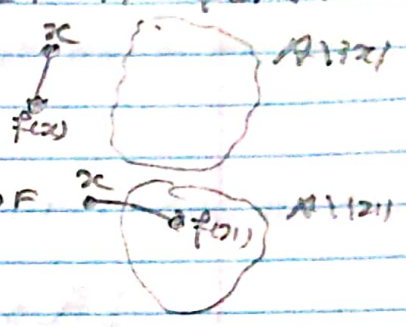 x
A \ {x}
f(x)
F
x
f(x)
A \ {x}